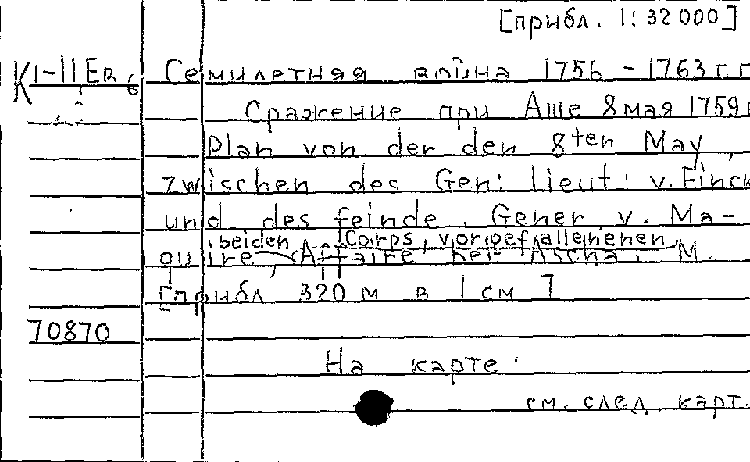 [прибл. 1:32 000]
Семилетняя война 1756 - 1763 г.г
Сражение при Аше 8 мая 1759 г
Plan von der den 8ten May
zwischen des Gen: Lieut: v. Finck
und des feinde. Gener v. Ma-
beiden Corps, vorgefallenenen
quire Affaire bei Ascha. M.
[прибл. 320 м в 1 см]
70870
На карте:
см. след. карт.